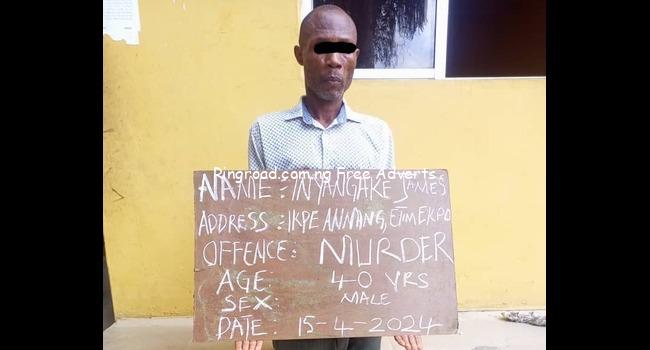 Ringroad.com.ng Free Adverts
NAME: INYANGAKE JAMES
ADDRESS: IKPE ANNANG, ETIM EKPO
OFFENCE: MURDER
AGE: 40 YRS
SEX: MALE
DATE: 15-4-2024